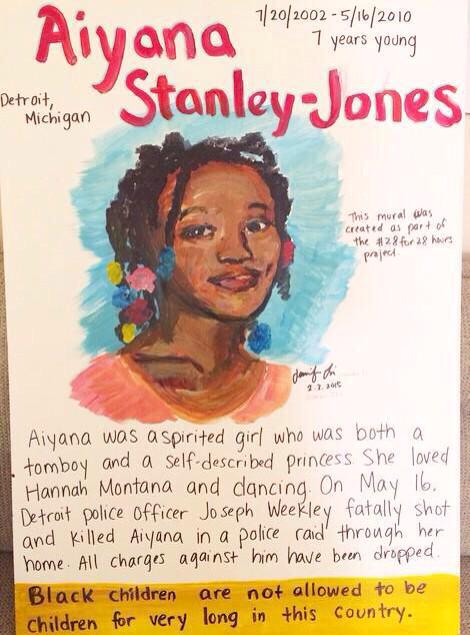 Aiyana
7/20/2002 - 5/16/2010
7 years young
Stanley-Jones
Detroit,
Michigan
This mural was
created as part of
the #28for28 hours
project.
2.2.2015
Aiyana was a spirited girl who was both a
tomboy and a self-described princess. She loved
Hannah Montana and dancing. On May 16,
Detroit police officer Joseph Weekley fatally shot
and killed Aiyana in a police raid through her
home. All charges against him have been dropped.
Black children are not allowed to be
children for very long in this country.